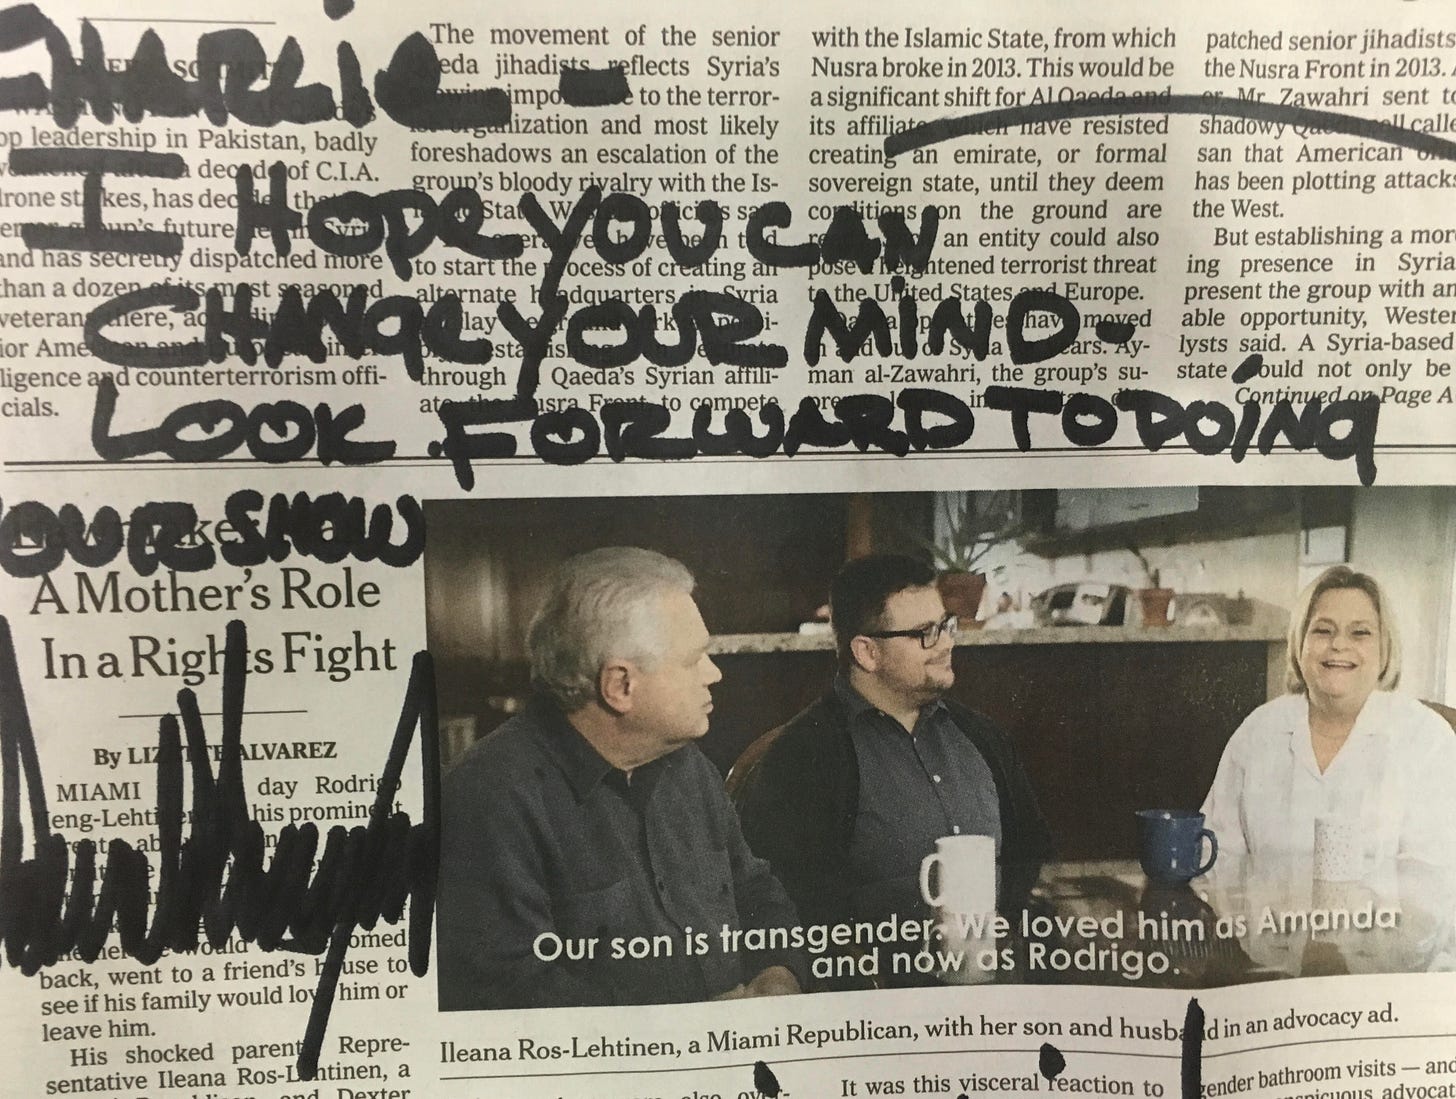 CHARLIE -
I HOPE YOU CAN
CHANGE YOUR MIND -
LOOK FORWARD TO DOING
YOUR SHOW
op leadership in Pakistan, badly
decade of C.I.A.
kes, has
future
and has secretly dispatched more
than a dozen of its most seasoned
veterans there,
ior American and
ligence and counterterrorism offi-
cials.
The movement of the senior
eda jihadists reflects Syria's
to the terror-
organization and most likely
foreshadows an escalation of the
group's bloody rivalry with the Is-
have been told
to start the process of creating an
alternate headquarters in Syria
lay
through Qaeda's Syrian affili-
ate, the Nusra Front, to compete
with the Islamic State, from which
Nusra broke in 2013. This would be
a significant shift for Al Qaeda and
its affiliate, which have resisted
creating an emirate, or formal
sovereign state, until they deem
conditions on the ground are
an entity could also
pose a heightened terrorist threat
to the United States and Europe.
have moved
in and out of Syria years. Ay-
man al-Zawahri, the group's su-
patched senior jihadists
the Nusra Front in 2013.
er, Mr. Zawahri sent to
shadowy Qaeda cell calle
san that American
has been plotting attacks
the West.
But establishing a mor
ing presence in Syria
present the group with an
able opportunity, Wester
lysts said. A Syria-based
state could not only be
Continued on Page A
A Mother's Role
In a Rights Fight
By LIZETTE ALVAREZ
MIAMI day Rodrigo
Heng-Lehtinen his prominent
would
back, went to a friend's house to
see if his family would love him or
leave him.
His shocked parents, Repre-
sentative Ileana Ros-Lehtinen, a
Republican, and Dexter
Our son is transgender. We loved him as Amanda
and now as Rodrigo.
Ileana Ros-Lehtinen, a Miami Republican, with her son and husband in an advocacy ad.
also
It was this visceral reaction to
gender bathroom visits — and
advocat